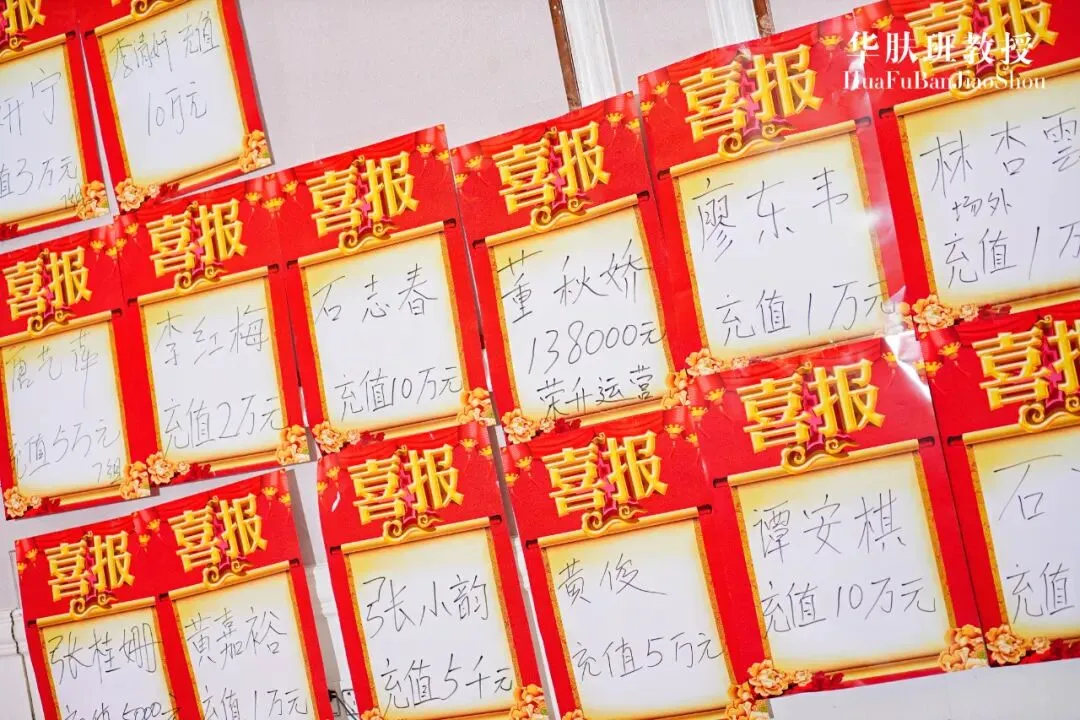 华肤班教授
HuaFuBanJiaoShou
报
宁
值3万元
李清妍 充值
10万元
喜报
唐艺萍
充值5万元
7组
喜报
李红梅
充值2万元
喜报
石志春
充值10万元
喜报
董秋娇
138000元
荣升运营
喜报
廖东韦
充值1万元
喜报
林杏雲
场外
充值1万
喜报
张桂姗
充值5000元
喜报
黄嘉裕
充值1万元
喜报
张小韵
充值5千元
喜报
黄俊
充值5万元
喜报
谭安棋
充值10万元
喜报
石
充值